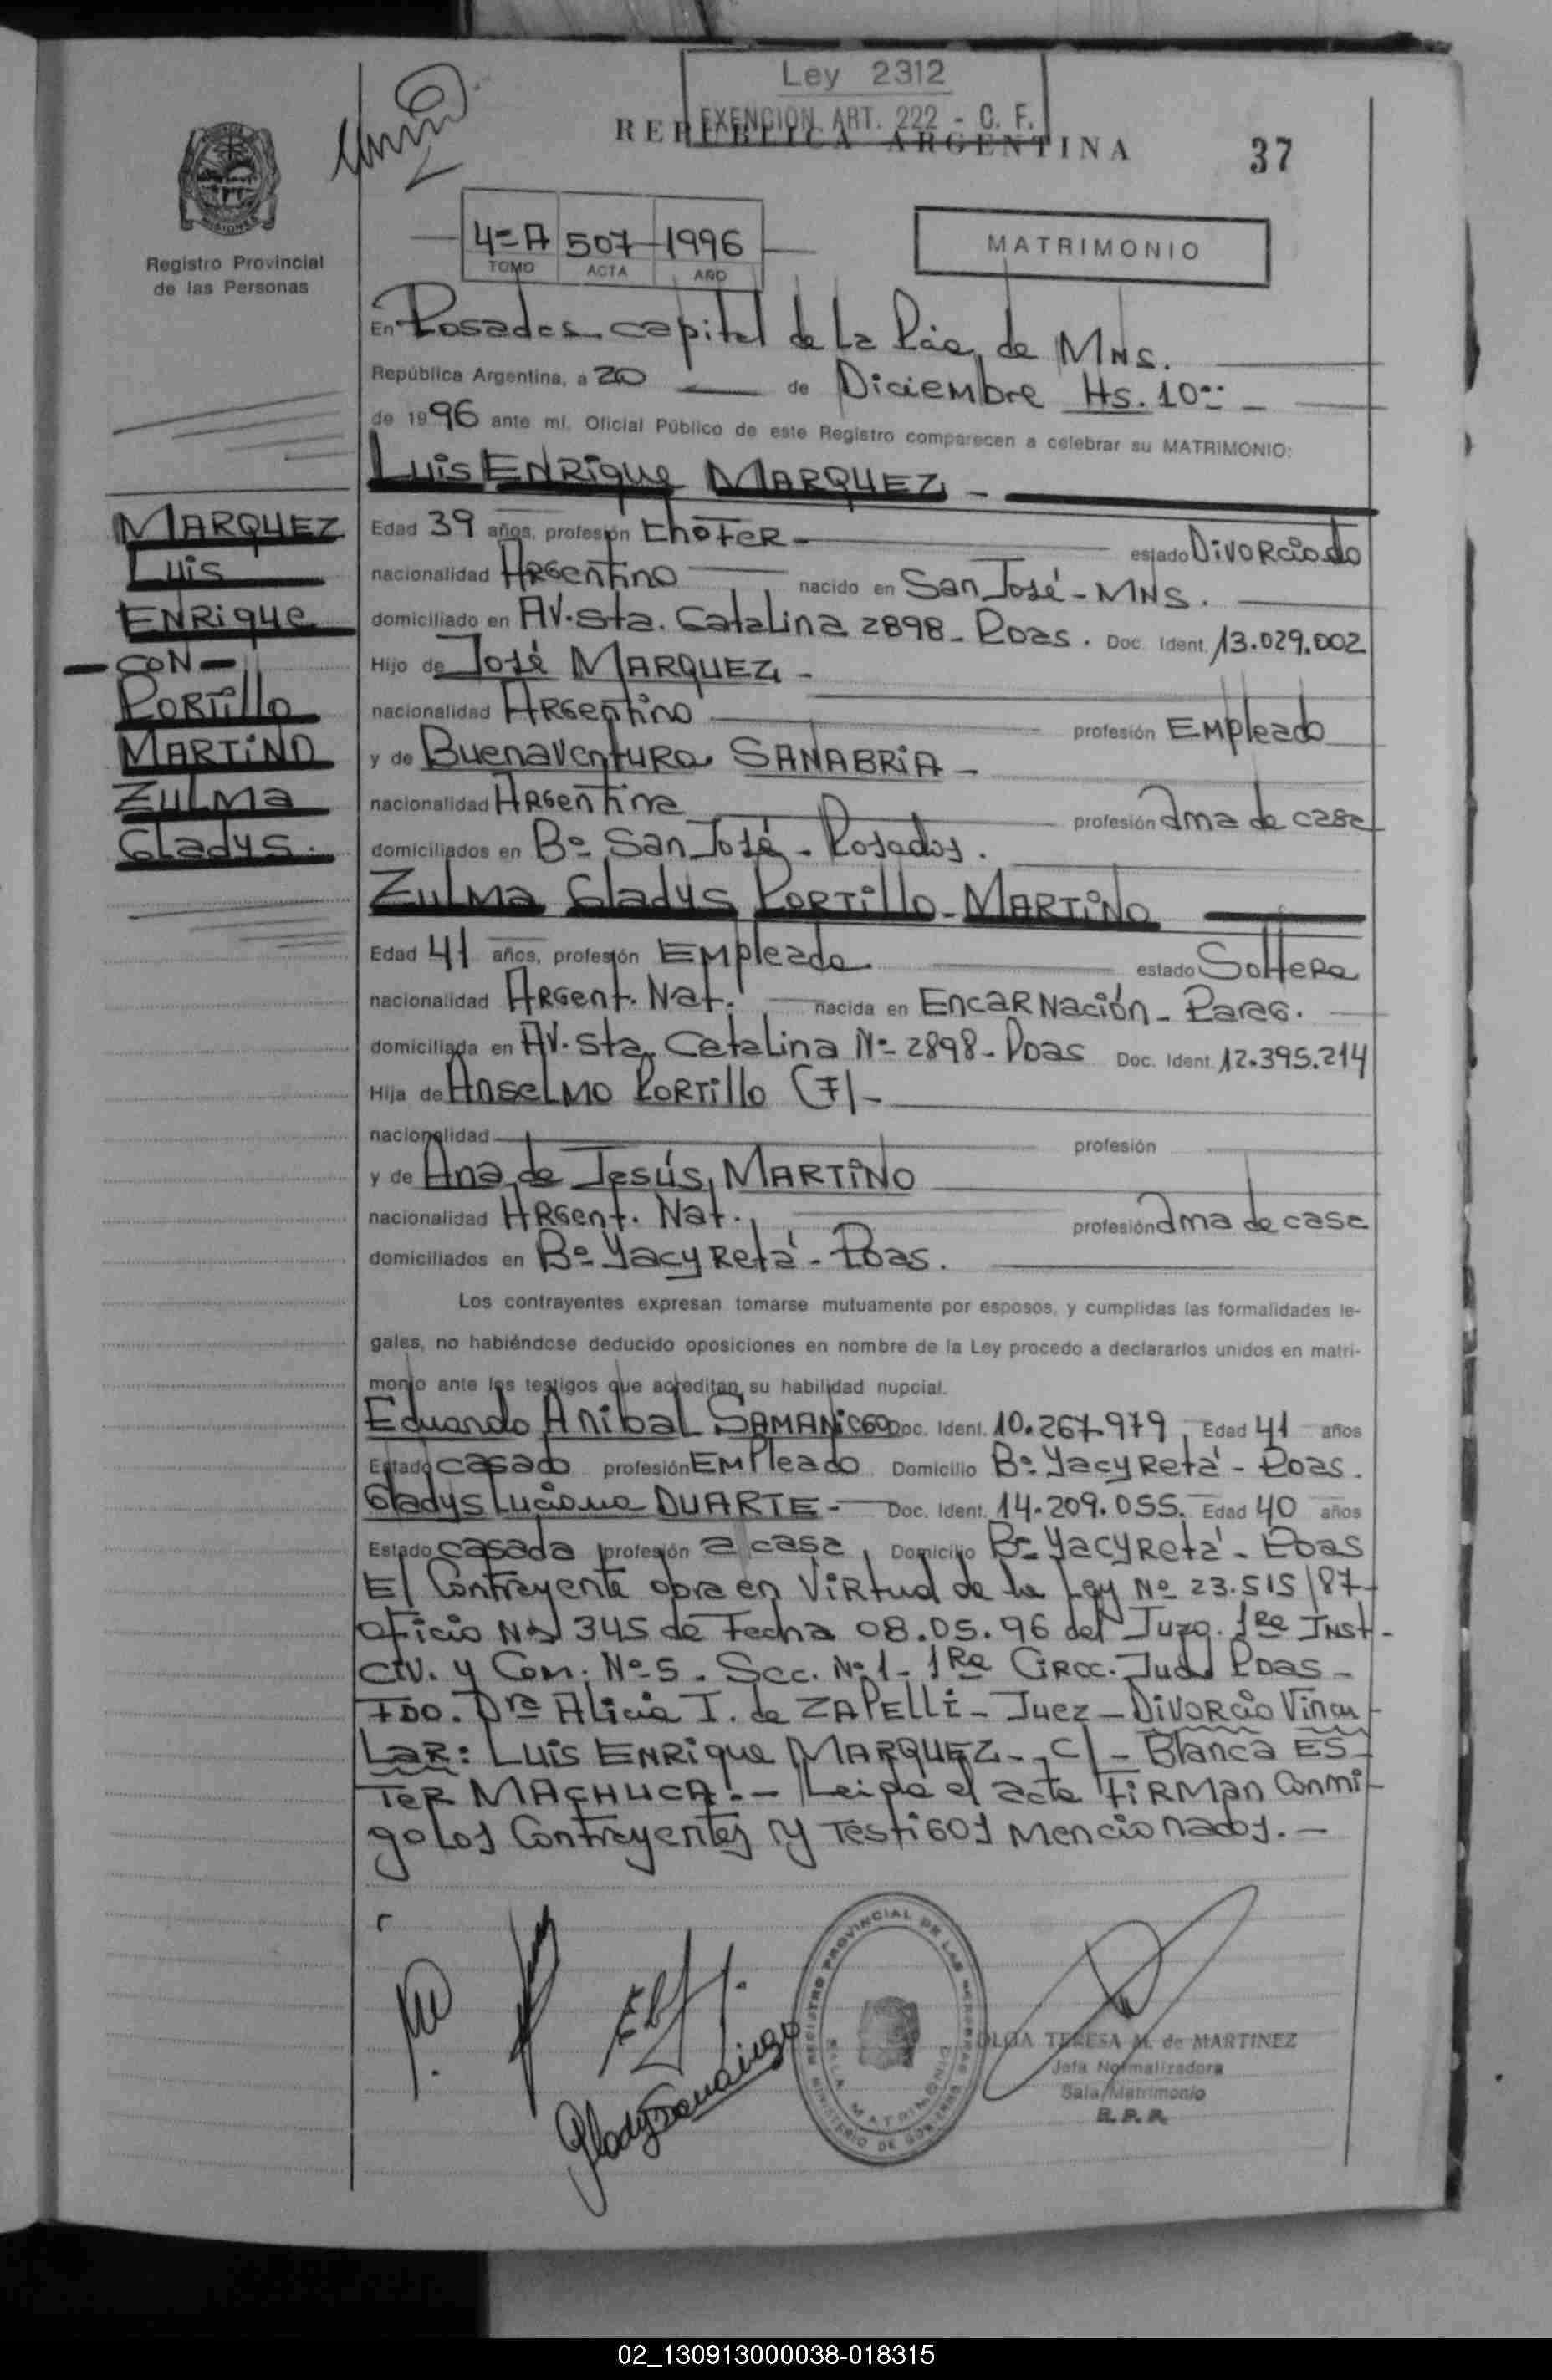 Ley 2312
EXENCION ART. 222 - C. F.
REPUBLICA ARGENTINA
37
MISIONES
Registro Provincial
de las Personas
4=A 507 1996
TOMO ACTA AÑO
MATRIMONIO
En Posadas capital de La Pcia, de MNS.
República Argentina, a 20 de Diciembre Hs. 10
de 1996 ante mí, Oficial Público de este Registro comparecen a celebrar su MATRIMONIO:
Luis ENRique MARQUEZ -
MARQUEZ
Luis
ENRique
-CON-
PORTillo
MARTiNO
ZULMa
Gladys.
Edad 39 años, profesión chofer - estado Divorciado
nacionalidad Argentino nacido en San José - MNS.
domiciliado en AV. Sta. Catalina 2898 - Poas. Doc. Ident. 13.029.002
Hijo de José MARQUEZ -
nacionalidad Argentino profesión Empleado
y de Buenaventura SANABRiA -
nacionalidad Argentina profesión ama de casa
domiciliados en Bº San José - Posadas.
Zulma Gladys PORTillo - MARTiNO
Edad 41 años, profesión Empleada estado Soltera
nacionalidad Argent. Nat. nacida en Encarnación - Parag.
domiciliada en AV. Sta. Catalina Nº 2898 - Poas Doc. Ident. 12.395.214
Hija de Anselmo PORTillo (F) -
nacionalidad profesión
y de Ana de Jesús, MARTiNO
nacionalidad Argent. Nat. profesión ama de casa
domiciliados en Bº Yacyretá - Poas.
Los contrayentes expresan tomarse mutuamente por esposos, y cumplidas las formalidades le-
gales, no habiéndose deducido oposiciones en nombre de la Ley procedo a declararlos unidos en matri-
monio ante los testigos que acreditan su habilidad nupcial.
Eduardo Anibal SAMANiEGO Doc. Ident. 10.267.979, Edad 41 años
Estado casado profesión Empleado Domicilio Bº Yacyretá - Poas.
Gladys Luciana DUARTE - Doc. Ident. 14.209.055. Edad 40 años
Estado casada profesión a casa, Domicilio Bº Yacyretá - Poas
El Contrayente obra en Virtud de la Ley Nº 23.515/87-
Oficio Nº 345 de Fecha 08.05.96 del Juzg. 1Ra Inst-
CIV. y Com. Nº 5. Sec. Nº 1 - 1Ra Circ. Jud Poas -
FDO. Dra Alicia I. de ZAPELLi - Juez - Divorcio Vincu-
Lar: Luis ENRique MARQUEZ - C/ - Blanca ES-
TeR MACHUCA. - Leida el acta Firman Conmi-
go Los Contrayentes y Testigos Mencionados. -
REGISTRO PROVINCIAL DE LAS PERSONAS
SALA MATRIMONIO
MINISTERIO DE GOBIERNO
OLGA TERESA M. de MARTINEZ
Jefa Normalizadora
Sala Matrimonio
R. P. P.
02_130913000038-018315